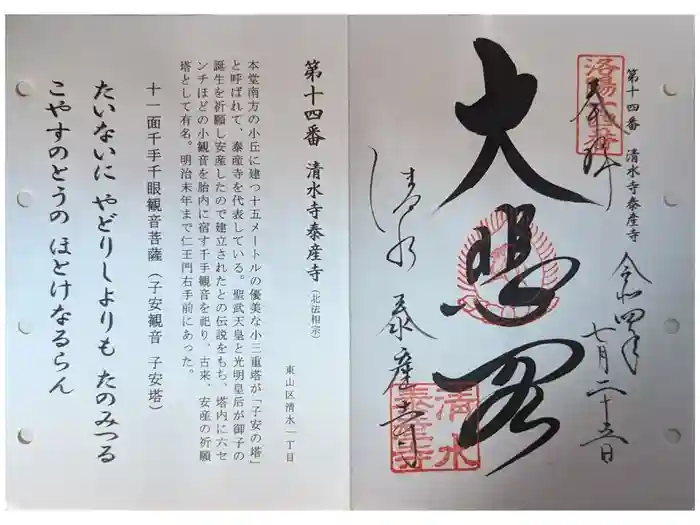 第十四番 清水寺泰産寺
奉拝
令和四年
七月二十五日
大悲閣
清水
泰産寺
清水
泰産寺
第十四番 清水寺泰産寺(北法相宗)
東山区清水一丁目
本堂南方の小丘に建つ十五メートルの優美な小三重塔が「子安の塔」
と呼ばれて、泰産寺を代表している。聖武天皇と光明皇后が御子の
誕生を祈願し安産したので建立されたとの伝説をもち、塔内に六セ
ンチほどの小観音を胎内に宿す千手観音を祀り、古来、安産の祈願
塔として有名。明治末年まで仁王門右手前にあった。
十一面千手千眼観音菩薩(子安観音 子安塔)
たいないに やどりしよりも たのみつる
こやすのとうの ほとけなるらん